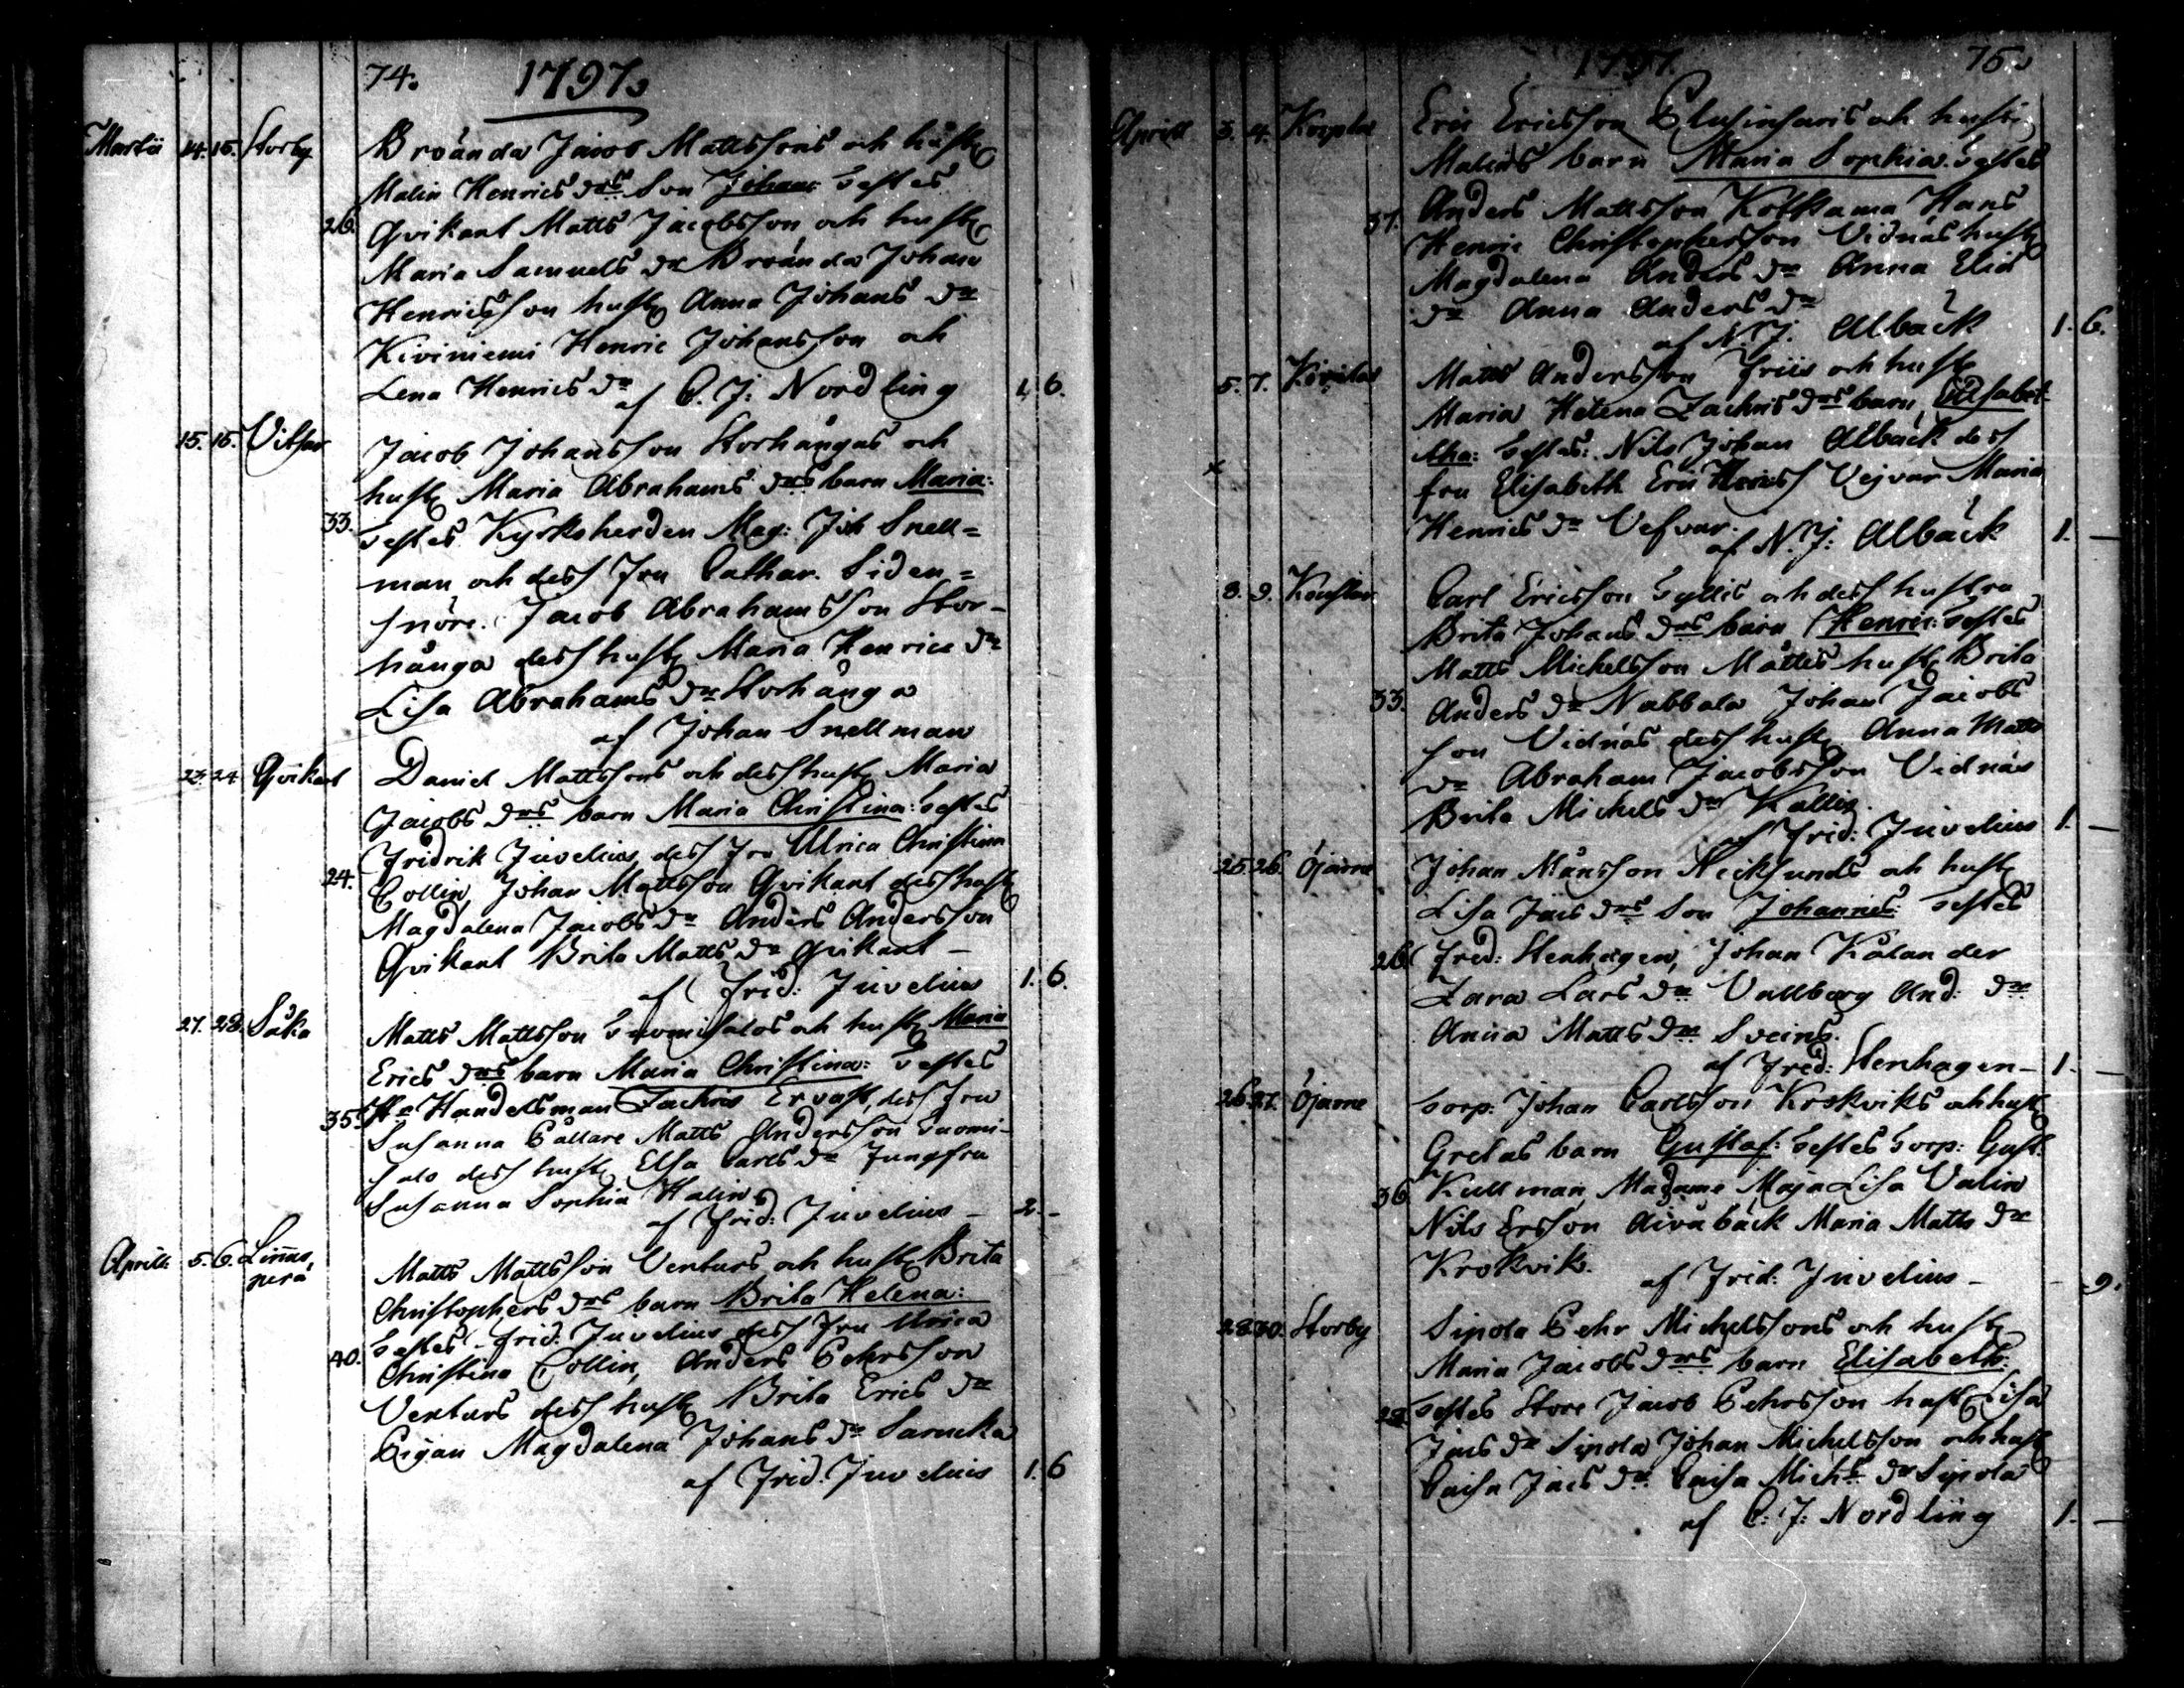 74. 1797.
Martii 14. 15. Storby Broända Jacob Mattssons och hustr
Malin Henrics drs Son Johan testes
26. Qvikant Matts Jacobsson och hustr
Maria Samuels dr Broända Johan
Henricsson hustr Anna Johans dr
Kiviniemi Henric Johansson och
Lena Henrics dr af C. J: Nordling 1. 6.
15. 16. Vitsar Jacob Johansson Storhångas och
hustr Maria Abrahams drs barn Maria:
33. testes Kyrkoherden Mag: Joh Snell=
man och dess fru Cathar. Siden=
snöre. Jacob Abrahamsson Stor-
hånga dess hustr Maria Henrics dr
Lisa Abrahams dr Storhånga
af Johan Snellman
23. 24 Qvikant Daniel Mattssons och dess hustr Maria
Jacobs drs barn Maria Christina: testes
Fridrik Juvelius dess fru Ulrica Christina
24. Collin, Johan Mattsson Qvikant dess hustr
Magdalena Jacobs dr Anders Andersson
Qvikant Brita Matts dr Qvikant –
af Frid: Juvelius 1. 6.
27. 28. Såka Matts Mattsson Suomisalos och hustr Maria
Erics drs barn Maria Christina: testes
35. Hr Handelsman Zachris Ervast, dess fru
Susanna Cållare Matts Andersson Suomi-
salo dess hustr Elsa Carls dr Jungfru
Susanna Sophia Halin
af Frid: Juvelius – 2. –
Aprill 5. 6. Linnus
perä Matts Mattsson Venturs och hustr Brita
Christophers drs barn Brita Helena:
testes Frid: Juvelius dess fru Ulrica
40. Christina Collin, Anders Pehrsson
Venturs dess hustr Brita Erics dr
Pigan Magdalena Johans dr
af Frid: Juvelius 1. 6
1797. 75.
Aprill 3. 4. Korpla Eric Ericsson och hustr
Malins barn Maria Sophia: testes
37. Anders Mattsson Kotkama Hans
Henric Christophersson Vidnäs hustr
Magdalena Anders dr Anna Elia
dr Anna Anders dr
af N. J. Albäck 1. 6.
5. 7. Matts Andersson Friis och hustr
Maria Helena Zachris drs barn Elisabet
tha: testes: Nils Johan Albäck dess
fru Elisabeth Eric Vejvar Maria
Henrics dr Vefvar.
af N. J: Albäck 1. –
8. 9. Carl Ericsson Gyllis och dess hustru
Brita Johans drs barn Henric: testes
Matts Michelsson Måttus hustr Brita
33. Anders dr Nabbala Johan Jacobs
son Vidnäs dess hustr Anna Matts
dr Abraham Jacobsson Vidnäs
Brita Michels dr Kallis.
af Frid: Juvelius 1. –
25. 26. Öjarne Johan Månsson Neck​sunds och hustr
Lisa Jacs drs Son Johannes: testes
26. Fred: Stenhagen, Johan Kålander
Zara Lars dr Vallberg And: dr
Anna Matts dr Sveins.
af Fred: Stenhagen – 1. –
26. 27. Öjarne Corp: Johan Carlsson Krokviks och hustr
Gretas barn Gustaf: testes Corp: Gust.
36. Kullman, Madame Maja Lisa Valin
Nils Ersson Åivåbäck Maria Matts dr
Krokvik.
af Frid: Juvelius – – 9.
28. 30. Storby Sipola Pehr Michelssons och hustr
Maria Jacobs drs barn Elisabeth:
28. testes Store Jacob Pehrsson hustr Lisa
Jacs dr Sipola Johan Michelsson och hustr
Caisa Jacs dr Caisa Mich:s dr Sipola
af C: J: Nordling 1. –